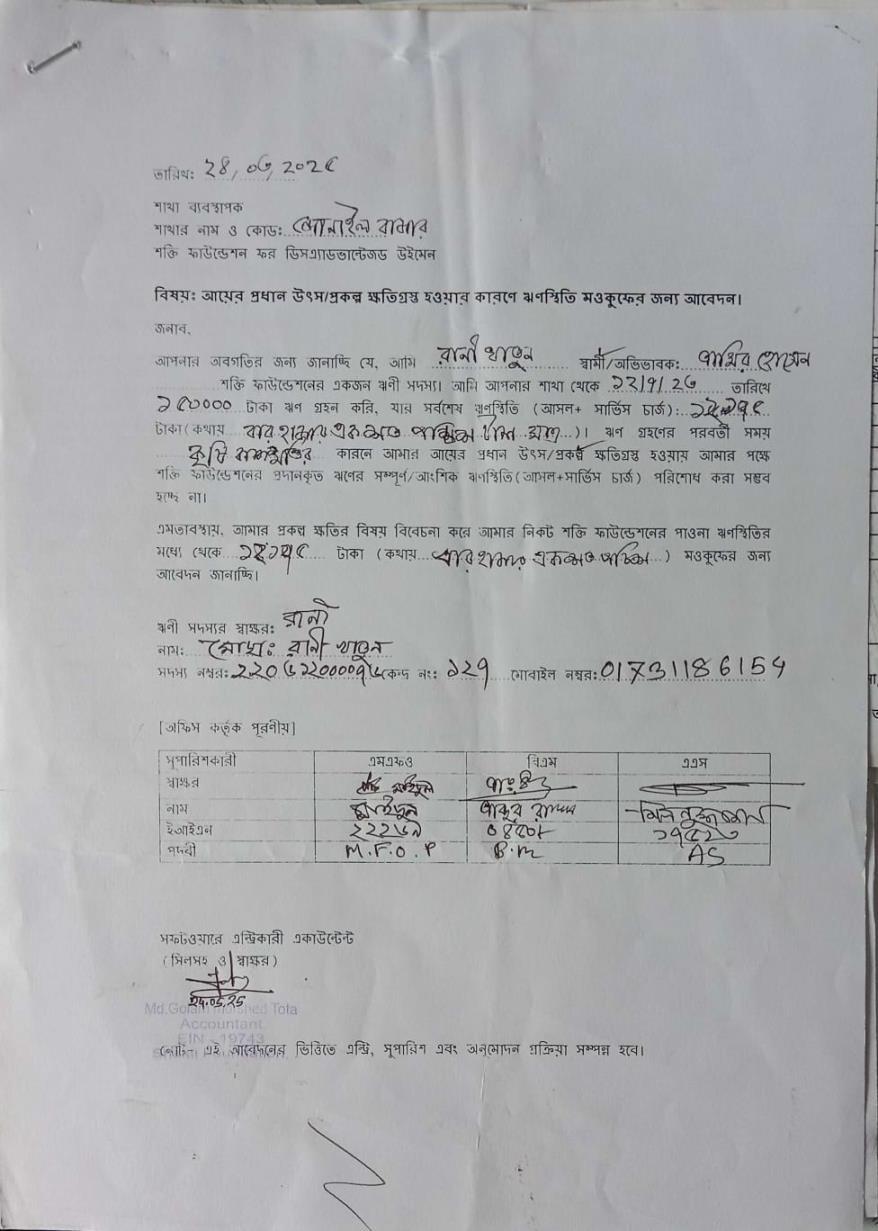 তারিখ: ২৪, ০৫, ২০২৫
শাখা ব্যবস্থাপক
শাখার নাম ও কোড: জোনাইল বাজার
শক্তি ফাউন্ডেশন ফর ডিসএ্যাডভান্টেজড উইমেন
বিষয়: আয়ের প্রধান উৎস/প্রকল্প ক্ষতিগ্রস্ত হওয়ার কারণে ঋণস্থিতি মওকুফের জন্য আবেদন।
জনাব,
আপনার অবগতির জন্য জানাচ্ছি যে, আমি রানী খাতুন স্বামী/অভিভাবক: হোসেন
শক্তি ফাউন্ডেশনের একজন ঋণী সদস্য। আমি আপনার শাখা থেকে তারিখে
টাকা ঋণ গ্রহন করি, যার সর্বশেষ ঋণস্থিতি (আসল+ সার্ভিস চার্জ):
টাকা(কথায় বার হাজার একশত মাত্র)। ঋণ গ্রহণের পরবর্তী সময়
কৃষি কারনে আমার আয়ের প্রধান উৎস/প্রকল্প ক্ষতিগ্রস্ত হওয়ায় আমার পক্ষে
শক্তি ফাউন্ডেশনের প্রদানকৃত ঋণের সম্পূর্ণ/আংশিক ঋণস্থিতি(আসল+সার্ভিস চার্জ) পরিশোধ করা সম্ভব
হচ্ছে না।
এমতাবস্থায়, আমার প্রকল্প ক্ষতির বিষয় বিবেচনা করে আমার নিকট শক্তি ফাউন্ডেশনের পাওনা ঋণস্থিতির
মধ্যে থেকে টাকা (কথায় বার হাজার একশত) মওকুফের জন্য
আবেদন জানাচ্ছি।
ঋণী সদস্যর স্বাক্ষর: রানী
নাম: মোছা: রানী খাতুন
সদস্য নম্বর: কেন্দ্র নং: ১২৭ মোবাইল নম্বর: 01731186154
[অফিস কর্তৃক পূরণীয়]
সুপারিশকারী এমএফও বিএম এএস
স্বাক্ষর
নাম
ইআইএন
পদবী M.F.O.P B.M AS
সফটওয়ারে এন্ট্রিকারী একাউন্টেন্ট
(সিলসহ ও স্বাক্ষর)
Md.Golam Morshed Tota
Accountant
EIN - 19743
নোট- এই আবেদনের ভিত্তিতে এন্ট্রি, সুপারিশ এবং অনুমোদন প্রক্রিয়া সম্পন্ন হবে।